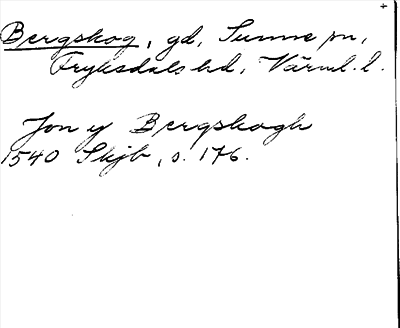 Bergskog, gd, Sunne sn,
Fryksdals hd, Värml. l.
Jon y Bergskogh
1540 Skjb, s. 176.